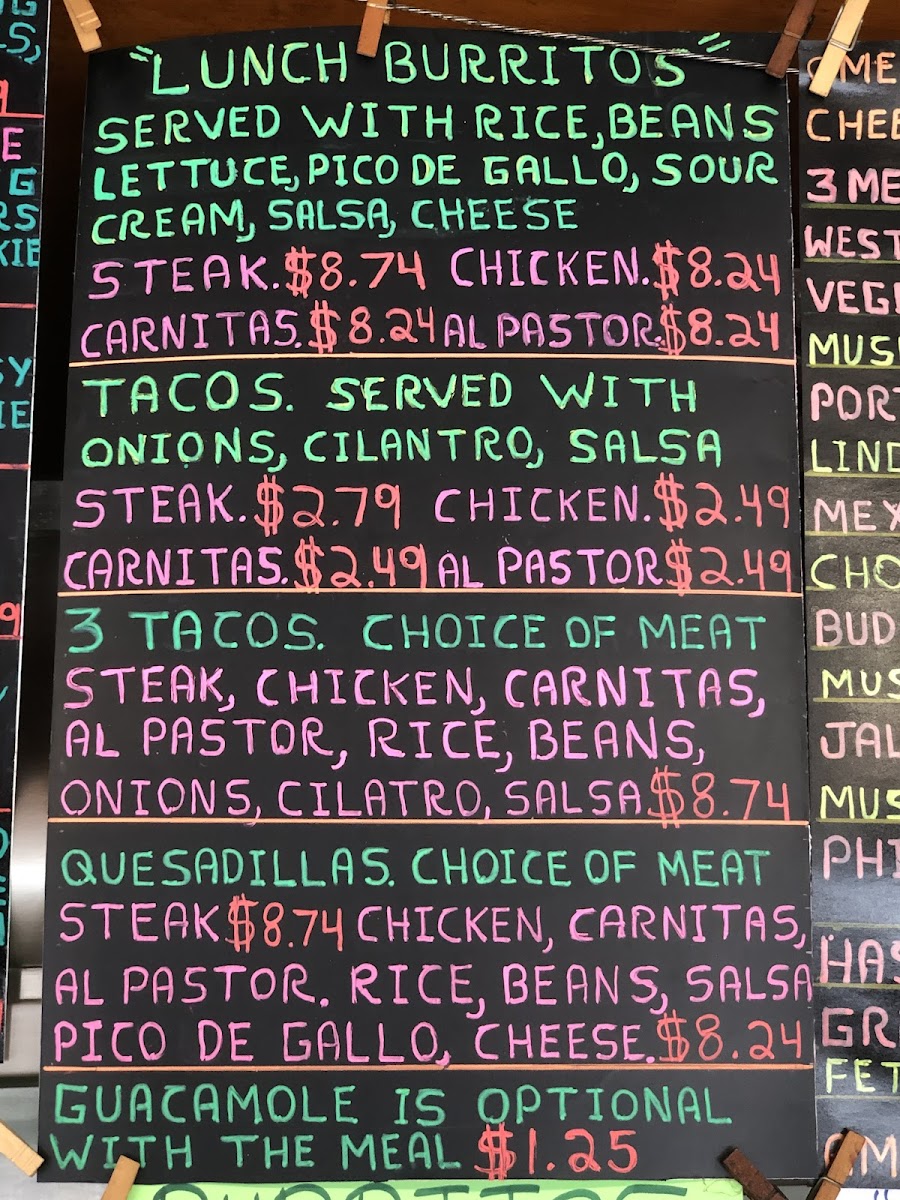 "LUNCH BURRITOS"
SERVED WITH RICE, BEANS
LETTUCE, PICO DE GALLO, SOUR
CREAM, SALSA, CHEESE
STEAK. $8.74 CHICKEN. $8.24
CARNITAS. $8.24 AL PASTOR. $8.24
TACOS. SERVED WITH
ONIONS, CILANTRO, SALSA
STEAK. $2.79 CHICKEN. $2.49
CARNITAS. $2.49 AL PASTOR $2.49
3 TACOS. CHOICE OF MEAT
STEAK, CHICKEN, CARNITAS,
AL PASTOR, RICE, BEANS,
ONIONS, CILATRO, SALSA $8.74
QUESADILLAS. CHOICE OF MEAT
STEAK $8.74 CHICKEN, CARNITAS,
AL PASTOR. RICE, BEANS, SALSA
PICO DE GALLO, CHEESE. $8.24
GUACAMOLE IS OPTIONAL
WITH THE MEAL $1.25
CHEE
3 ME
WEST
VEG
MUS
PORT
LIND
MEX
CHO
BUD
MUS
JAL
MUS
PHI
HAS
GR
FET